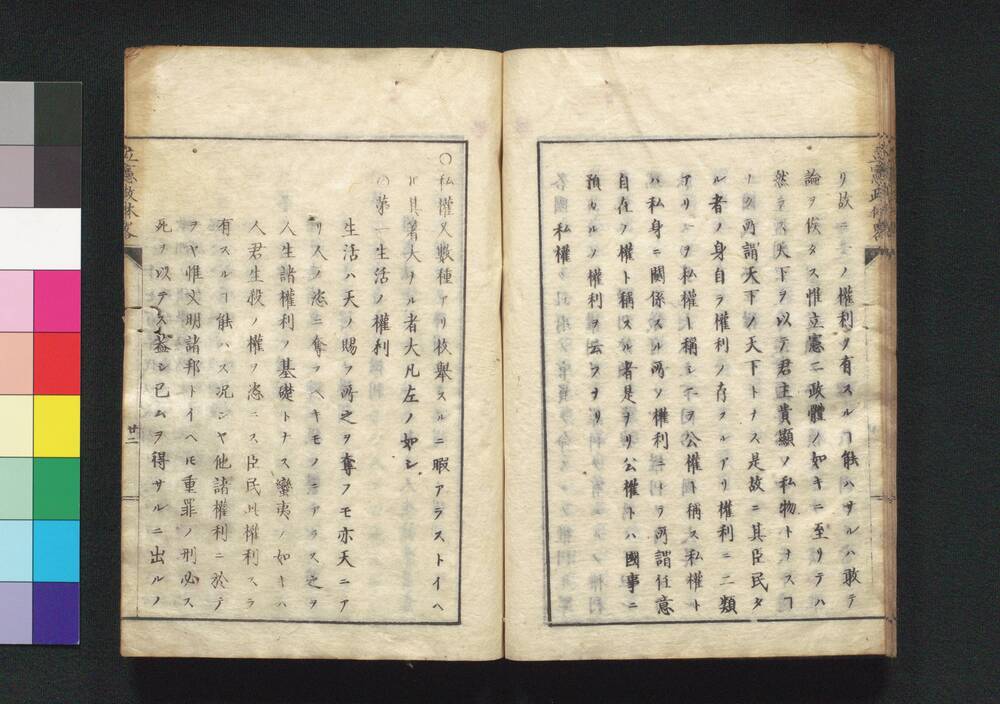 リ故ニ ノ權利ヲ有スルヿ能ハサルハ敢テ
論ヲ俟タス惟立憲ニ政體ノ如キニ至リテハ
然ラス天下ヲ以テ君主貴顯ノ私物トナスヿ
ナク所謂天下ノ天下トナス是故ニ其臣民タ
ル者ノ身自ラ權利ノ存スルアリ權利ニ二類
アリ一ヲ私權ト稱シ二ヲ公權ト稱ス私權ト
ハ私身ニ關係スル所ノ權利ニ乄所謂任意
自在ノ權ト稱スル者是ナリ公權トハ國事ニ
預カルノ權利ヲ云フナリ
私權
〇私權又數種アリ枚舉スルニ暇アラストイヘ
𪜈其著大ナル者大凡左ノ如シ
〇第一生活ノ權利
生活ハ天ノ賜フ所之ヲ奪フモ亦天ニア
リ人ノ恣ニ奪フヘキモノニアラス之ヲ
人生諸權利ノ基礎トナス蠻夷ノ如キハ
人君生殺ノ權ヲ恣ニス臣民此權利スラ
有スルヿ能ハス况ンヤ他諸權利ニ於テ
ヲヤ惟文明諸邦トイヘ𪜈重罪ノ刑必ス
死ヲ以テス蓋シ已ムヲ得サルニ出ルノ
立憲政体略
廿二
立憲政体略